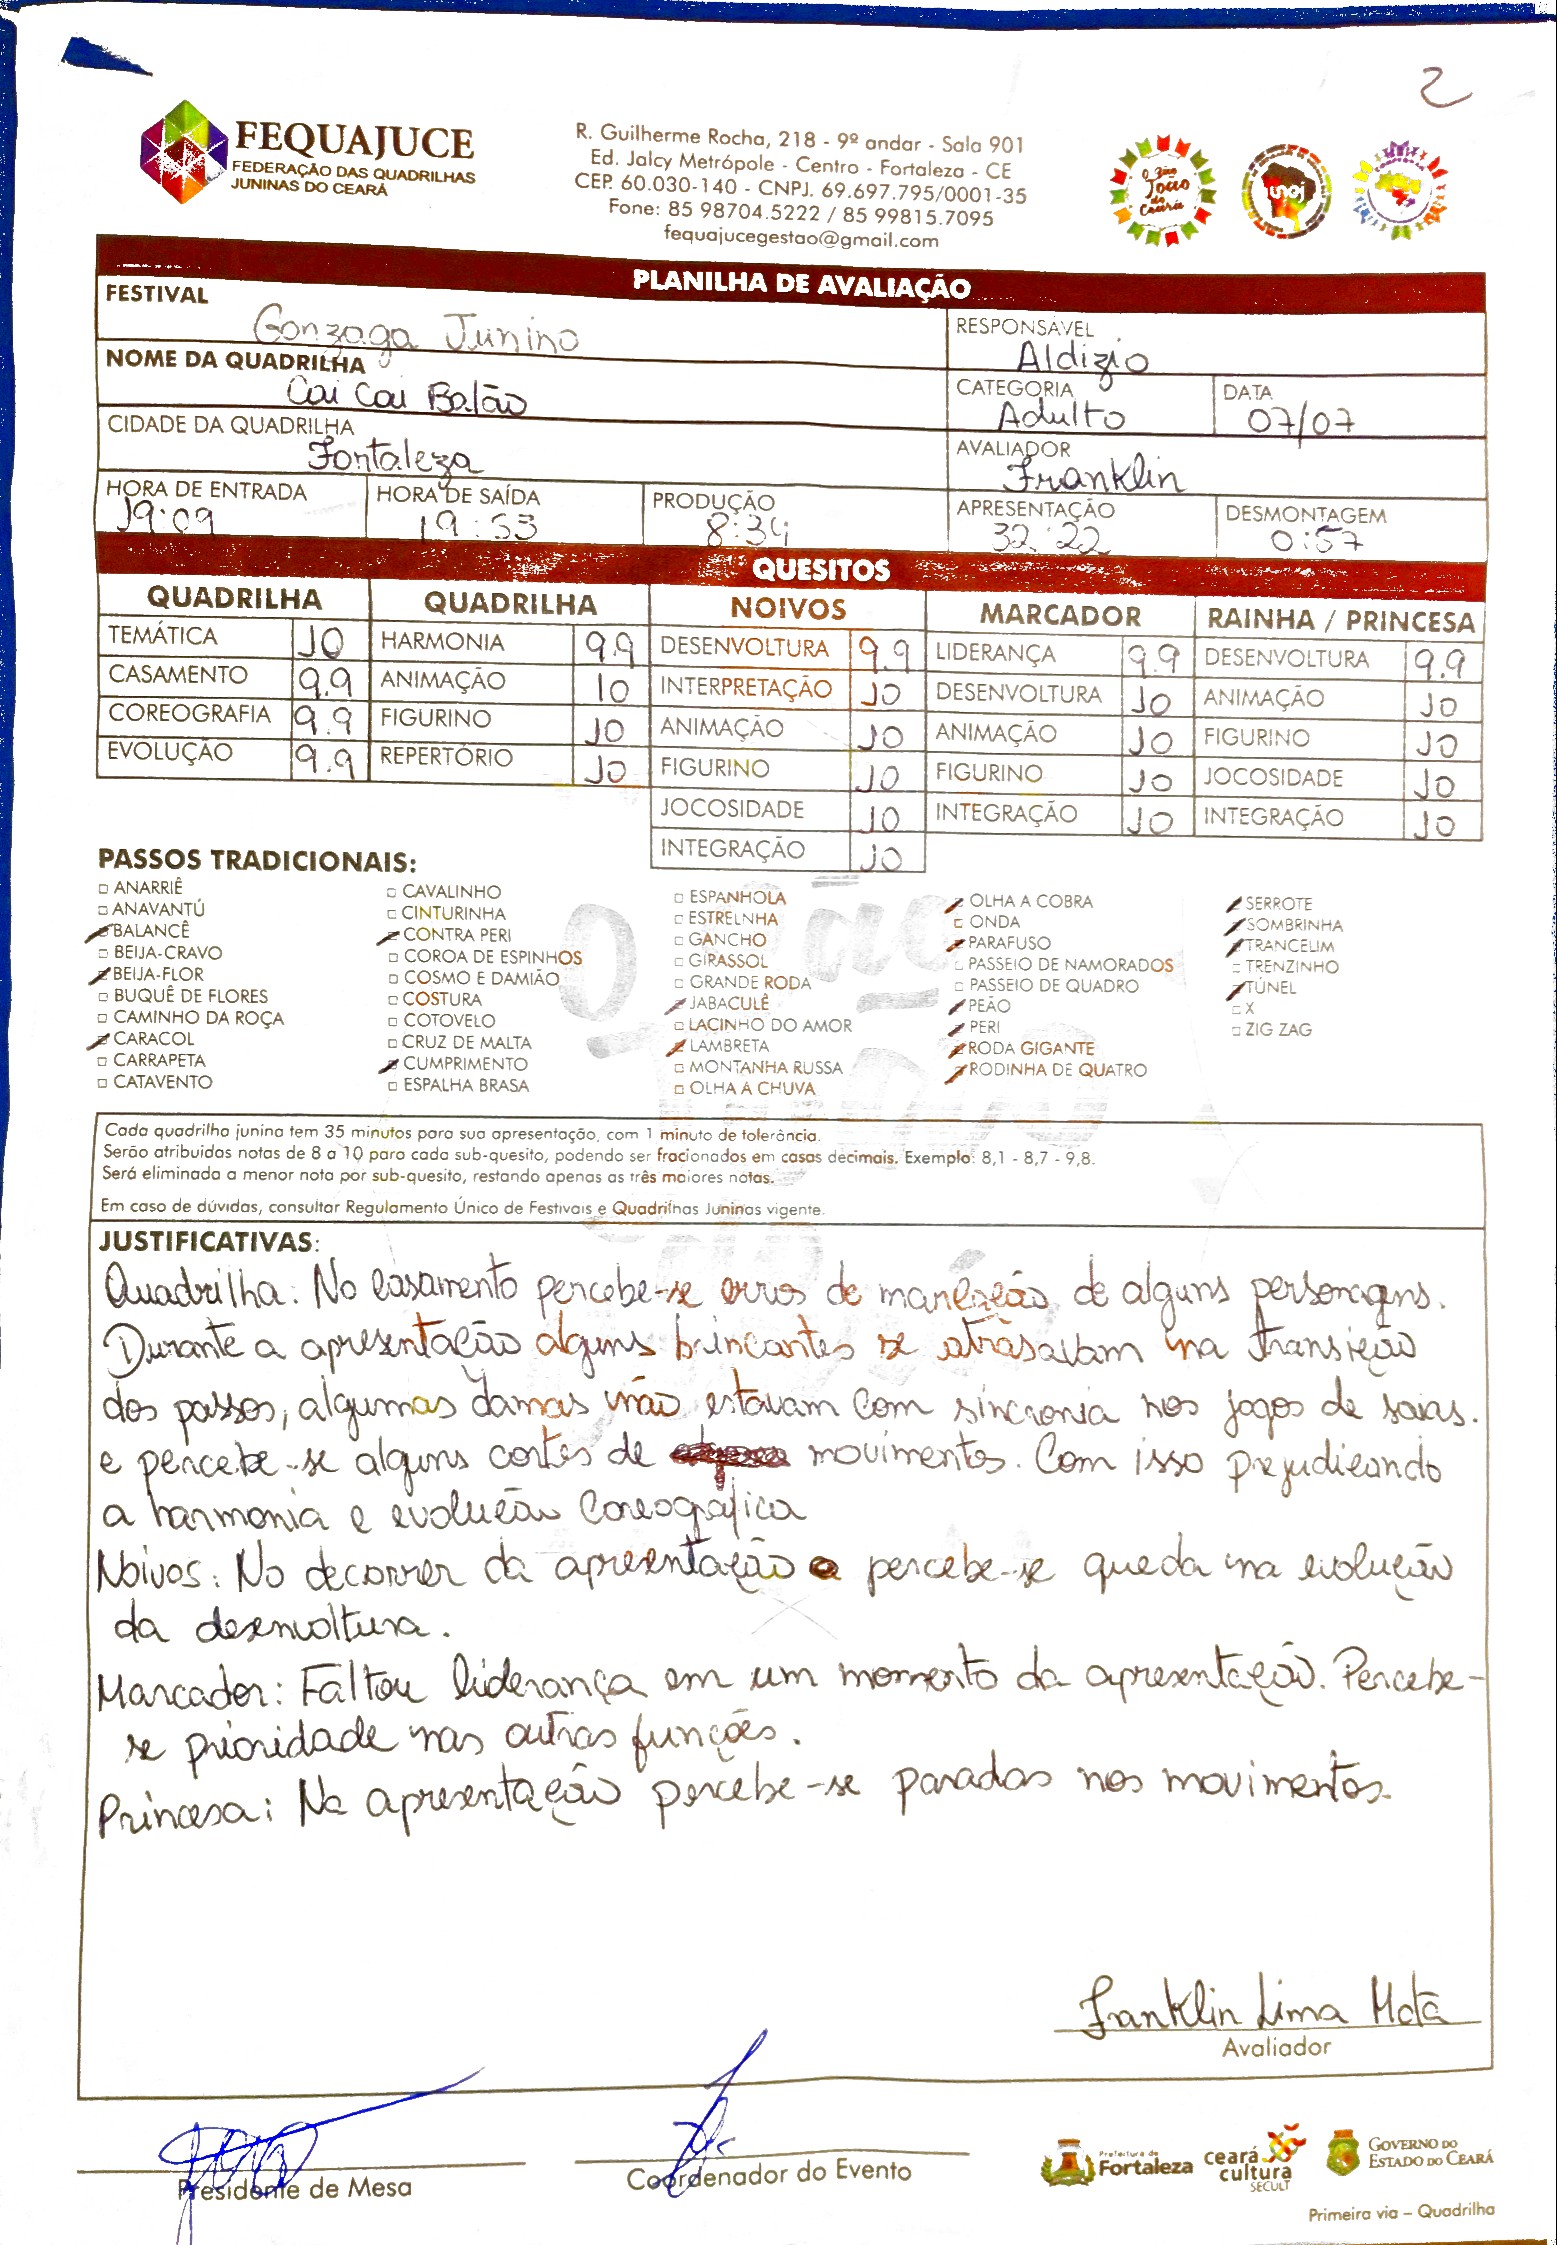 2
FEQUAJUCE
FEDERAÇÃO DAS QUADRILHAS
JUNINAS DO CEARÁ
R. Guilherme Rocha, 218 - 9º andar - Sala 901
Ed. Jalcy Metrópole - Centro - Fortaleza - CE
CEP. 60.030-140 - CNPJ. 69.697.795/0001-35
Fone: 85 98704.5222 / 85 99815.7095
fequajucegestao@gmail.com
São João do Ceará
unoj
PLANILHA DE AVALIAÇÃO
FESTIVAL Gonzaga Junino
RESPONSÁVEL Aldizio
NOME DA QUADRILHA Cai Cai Balão
CATEGORIA Adulto
DATA 07/07
CIDADE DA QUADRILHA Fortaleza
AVALIADOR Franklin
HORA DE ENTRADA 19:09
HORA DE SAÍDA 19:53
PRODUÇÃO 8:34
APRESENTAÇÃO 32:22
DESMONTAGEM 0:57
QUESITOS
QUADRILHA QUADRILHA NOIVOS MARCADOR RAINHA / PRINCESA
TEMÁTICA 10 HARMONIA 9.9 DESENVOLTURA 9.9 LIDERANÇA 9.9 DESENVOLTURA 9.9
CASAMENTO 9.9 ANIMAÇÃO 10 INTERPRETAÇÃO 10 DESENVOLTURA 10 ANIMAÇÃO 10
COREOGRAFIA 9.9 FIGURINO 10 ANIMAÇÃO 10 ANIMAÇÃO 10 FIGURINO 10
EVOLUÇÃO 9.9 REPERTÓRIO 10 FIGURINO 10 FIGURINO 10 JOCOSIDADE 10
JOCOSIDADE 10 INTEGRAÇÃO 10 INTEGRAÇÃO 10
INTEGRAÇÃO 10
PASSOS TRADICIONAIS:
ANARRIÊ CAVALINHO ESPANHOLA OLHA A COBRA SERROTE
ANAVANTÚ CINTURINHA ESTRELNHA ONDA SOMBRINHA
BALANCÊ CONTRA PERI GANCHO PARAFUSO TRANCELIM
BEIJA-CRAVO COROA DE ESPINHOS GIRASSOL PASSEIO DE NAMORADOS TRENZINHO
BEIJA-FLOR COSMO E DAMIÃO GRANDE RODA PASSEIO DE QUADRO TÚNEL
BUQUÊ DE FLORES COSTURA JABACULÊ PEÃO X
CAMINHO DA ROÇA COTOVELO LACINHO DO AMOR PERI ZIG ZAG
CARACOL CRUZ DE MALTA LAMBRETA RODA GIGANTE
CARRAPETA CUMPRIMENTO MONTANHA RUSSA RODINHA DE QUATRO
CATAVENTO ESPALHA BRASA OLHA A CHUVA
Cada quadrilha junina tem 35 minutos para sua apresentação, com 1 minuto de tolerância.
Serão atribuidos notas de 8 a 10 para cada sub-quesito, podendo ser fracionados em casas decimais. Exemplo: 8,1 - 8,7 - 9,8.
Será eliminada a menor nota por sub-quesito, restando apenas as três maiores notas.
Em caso de dúvidas, consultar Regulamento Único de Festivais e Quadrilhas Juninas vigente.
JUSTIFICATIVAS:
Quadrilha: No casamento percebe-se erros de marcação de alguns personagns.
Durante a apresentação alguns brincantes se atrasavam na transição
dos passos, algumas damas não estavam com sincronia nos jogos de saias.
e percebe-se alguns cortes de movimentos. Com isso prejudicando
a harmonia e evolução coreográfica
Noivos: No decorrer da apresentação percebe-se queda na evolução
da desenvoltura.
Marcador: Faltou liderança em um momento da apresentação. Percebe-
se prioridade nas outras funções.
Princesa: Na apresentação percebe-se paradas nos movimentos.
Franklin Lima Mota
Avaliador
Presidente de Mesa
Coordenador do Evento
Prefeitura de
Fortaleza
ceará
cultura
SECULT
GOVERNO DO
ESTADO DO CEARÁ
Primeira via – Quadrilha